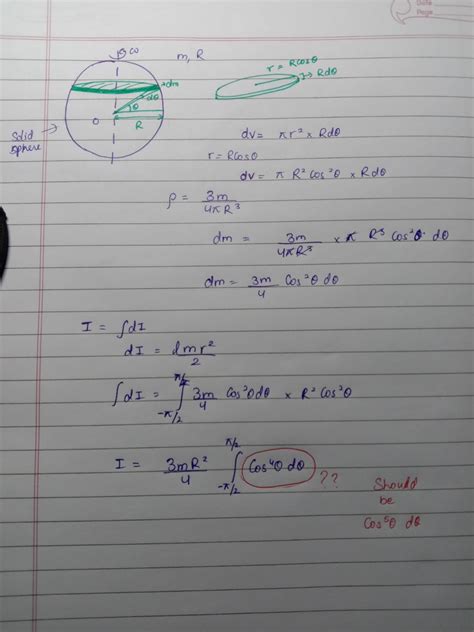 Date
Page
ω
m, R
r = Rcosθ
Rdθ
dm
dθ
θ
O
R
Solid
sphere
dv = πr² × Rdθ
r = Rcosθ
dv = π R² cos²θ × Rdθ
ρ = 3m / 4πR³
dm = 3m / 4πR³ × π R³ cos²θ dθ
dm = 3m / 4 cos²θ dθ
I = ∫dI
dI = dmr² / 2
∫dI = ∫_{-π/2}^{π/2} 3m / 4 cos²θdθ × R²cos²θ
I = 3mR² / 4 ∫_{-π/2}^{π/2} cos⁴θ dθ ??
Should
be
cos⁵θ dθ